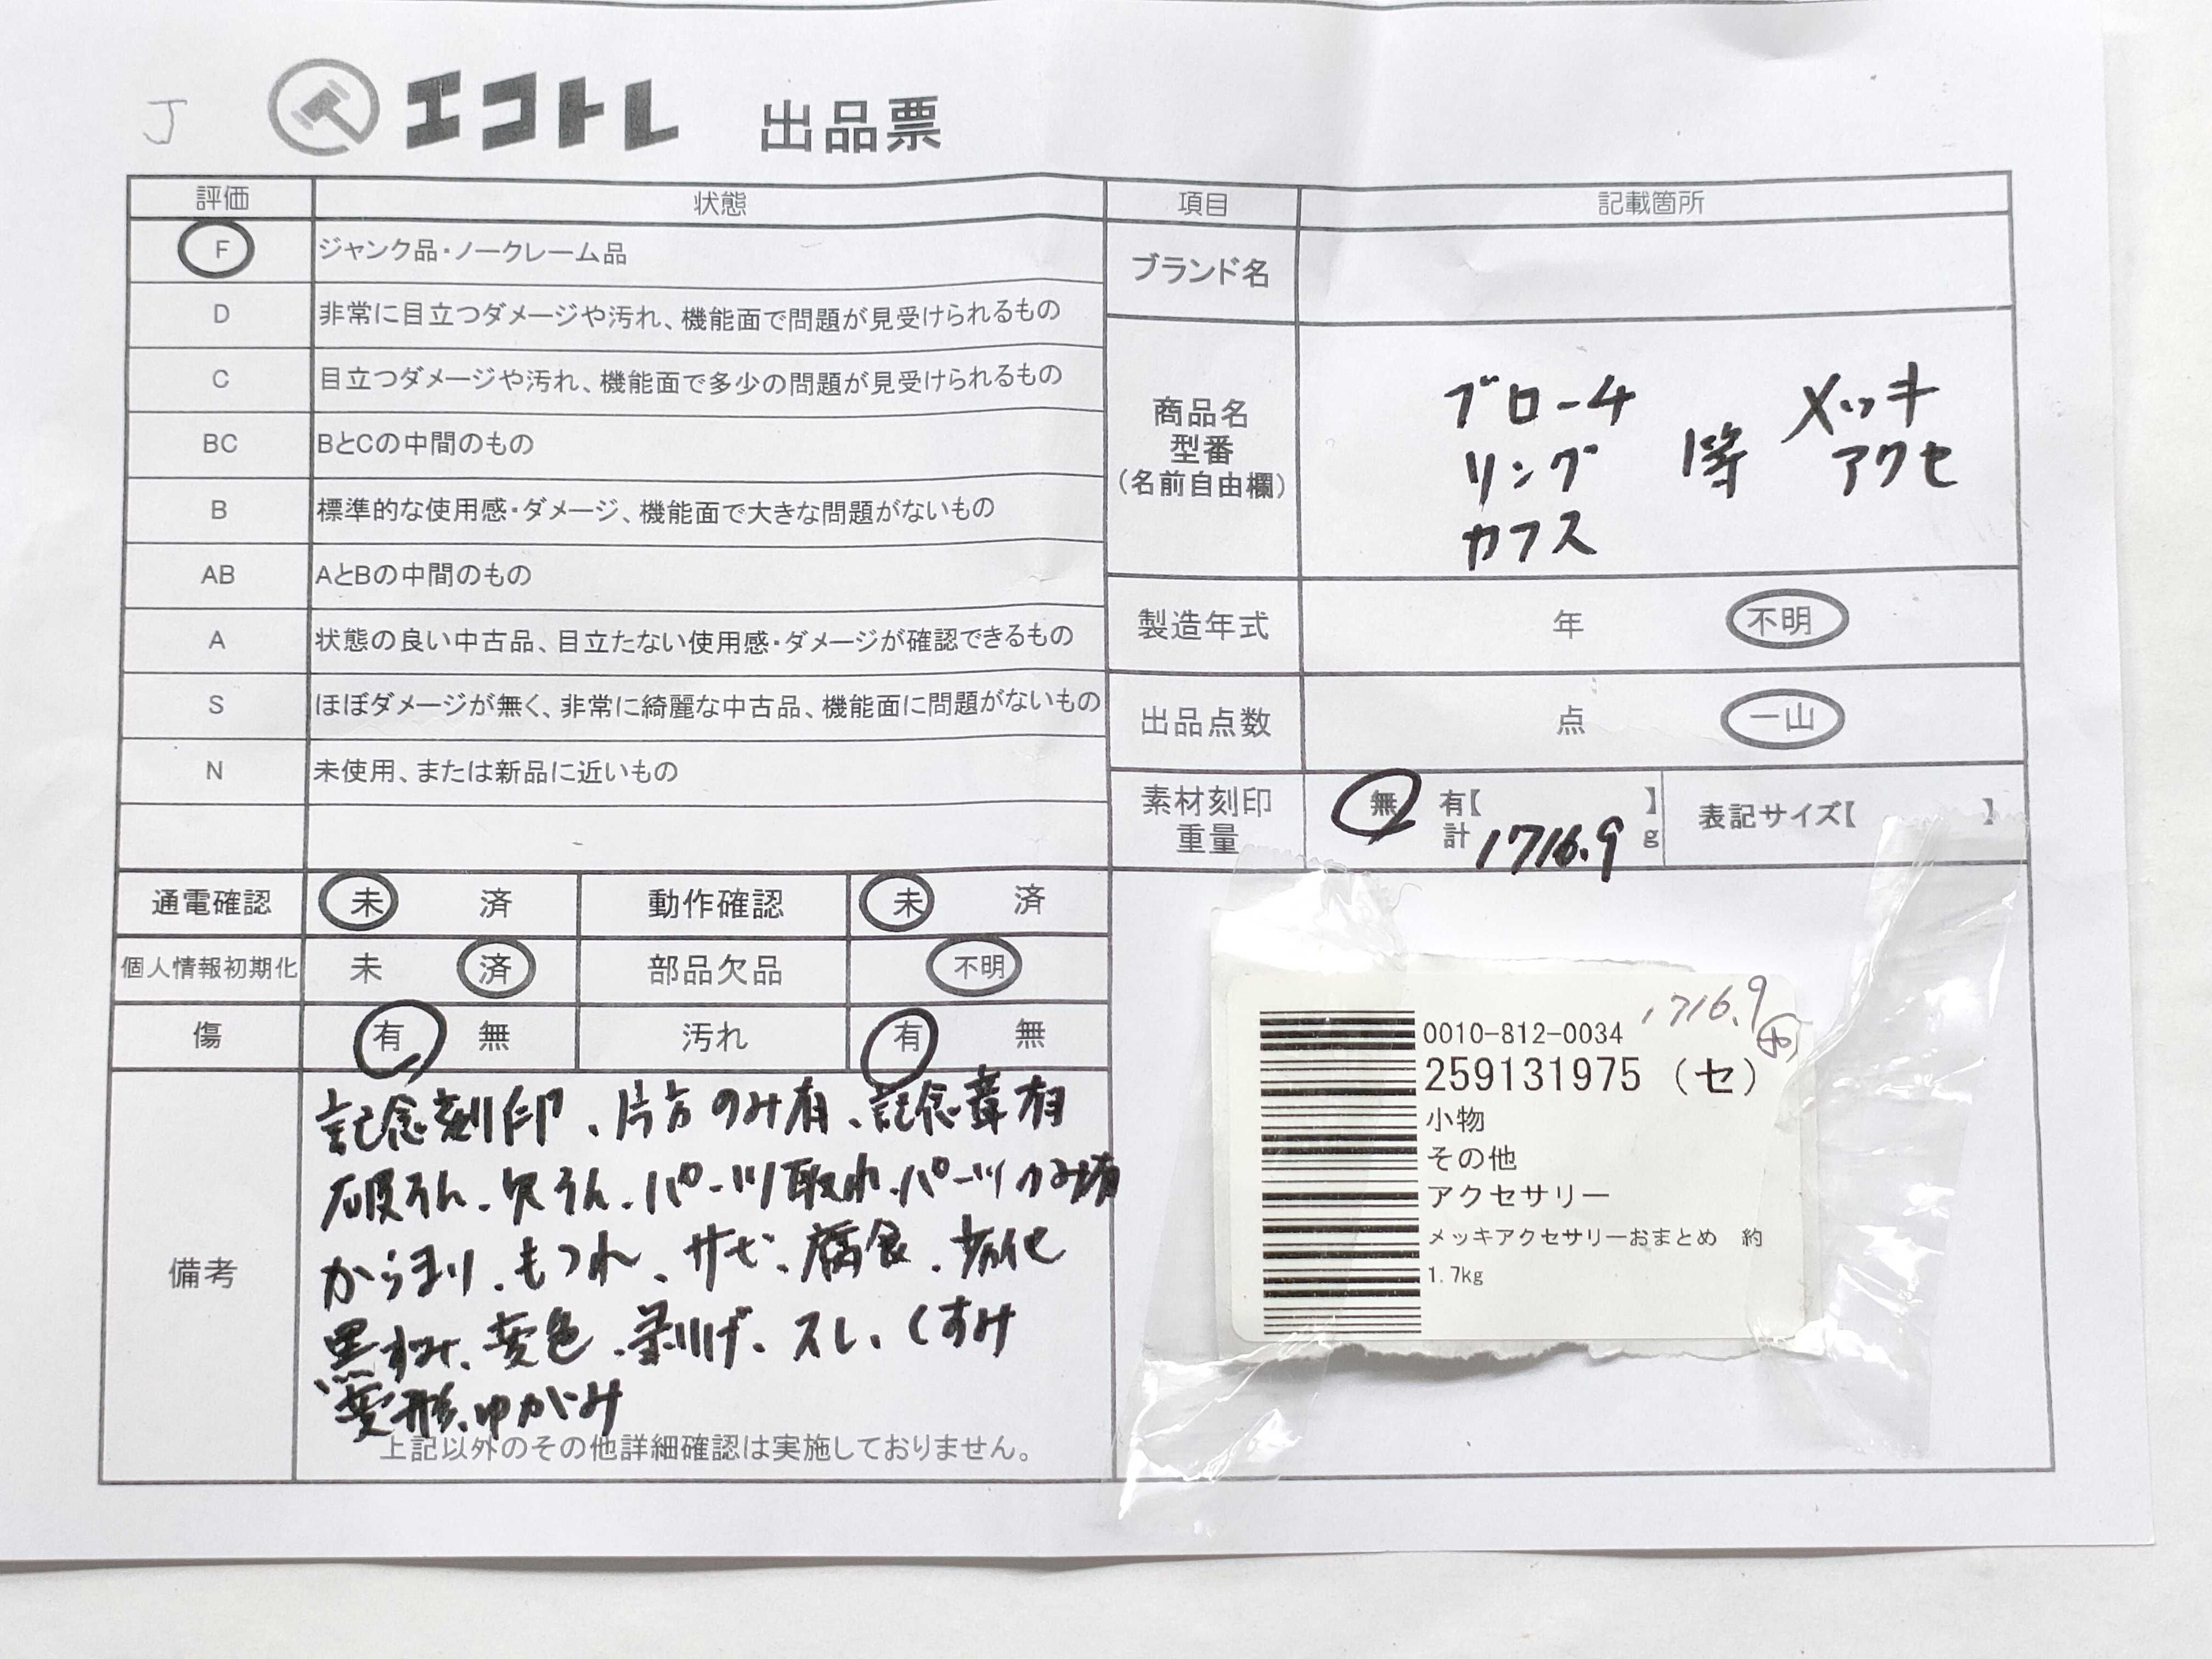 J
エコトレ 出品票
評価 状態
F ジャンク品・ノークレーム品
D 非常に目立つダメージや汚れ、機能面で問題が見受けられるもの
C 目立つダメージや汚れ、機能面で多少の問題が見受けられるもの
BC BとCの中間のもの
B 標準的な使用感・ダメージ、機能面で大きな問題がないもの
AB AとBの中間のもの
A 状態の良い中古品、目立たない使用感・ダメージが確認できるもの
S ほぼダメージが無く、非常に綺麗な中古品、機能面に問題がないもの
N 未使用、または新品に近いもの
通電確認 未 済 動作確認 未 済
個人情報初期化 未 済 部品欠品 不明
傷 有 無 汚れ 有 無
備考
記念刻印、片方のみ有、記念章有
破そん、欠そん、パーツ取れ、パーツのみ有
からまり、もつれ、サビ、腐食、劣化
黒ずみ、変色、剥げ、スレ、くすみ
変形、ゆがみ
上記以外のその他詳細確認は実施しておりません。
項目 記載箇所
ブランド名
商品名
型番
(名前自由欄)
ブローチ
リング
カフス
等
メッキ
アクセ
製造年式 年 不明
出品点数 点 一山
素材刻印
重量
無 有【 】
計 1716.9 g
表記サイズ【 】
1716.9
0010-812-0034
259131975 (セ)
小物
その他
アクセサリー
メッキアクセサリーおまとめ 約
1.7kg